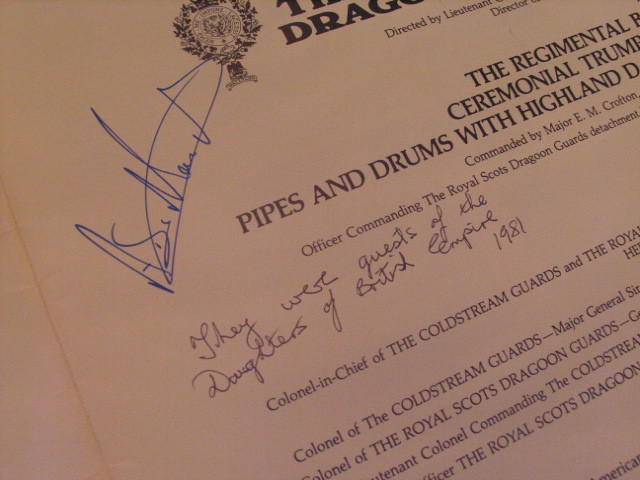 DRAGOO
Directed by Lieutenant
Director
THE REGIMENTAL
CEREMONIAL TRUMP
PIPES AND DRUMS WITH HIGHLAND D
Commanded by Major E. M. Crofton,
Officer Commanding The Royal Scots Dragoon Guards detachment,
They were guests of the
Daughters of British Empire
1981
Colonel-in-Chief of THE COLDSTREAM GUARDS and THE ROYAL
HE
Colonel of THE COLDSTREAM GUARDS—Major General Sir
Colonel of THE ROYAL SCOTS DRAGOON GUARDS—Ge
Lieutenant Colonel Commanding The COLDSTREAM
Officer THE ROYAL SCOTS DRAGOON
American